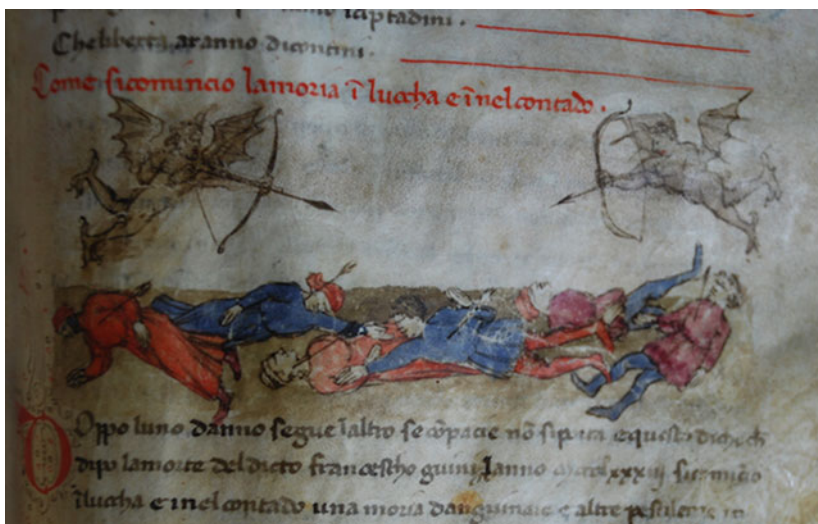 captadini.
Chebberta aranno dicontini.
Come sicomincio lamoria ĩ luccha e ĩnelcontado.
Doppo luno danno segue laltro se cõpacie nõ sipita e questo dicho ch
dipo lamorte del dicto francescho guinigi lanno mccclxxxiij
ĩ luccha e inel contado una moria danguinaie e altre pestilente in